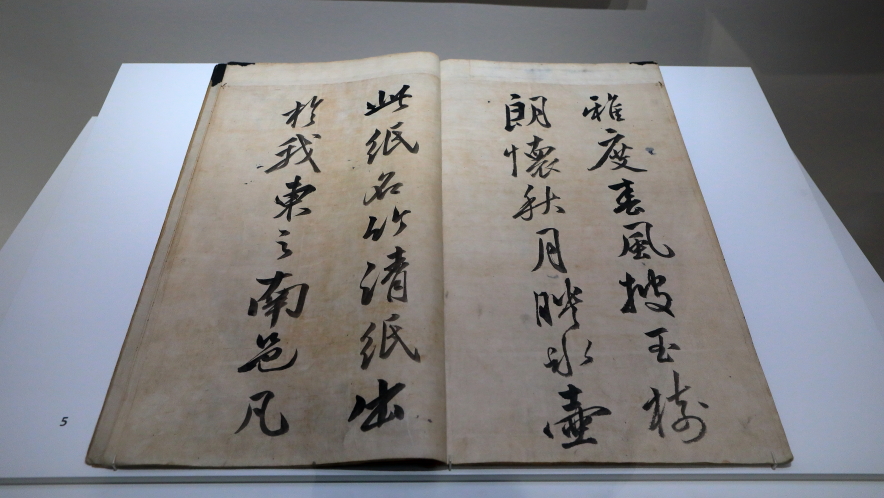 雅度春風披玉樹
朗懷秋月映氷壺
此紙名竹清紙出
於我東之南邑凡
5